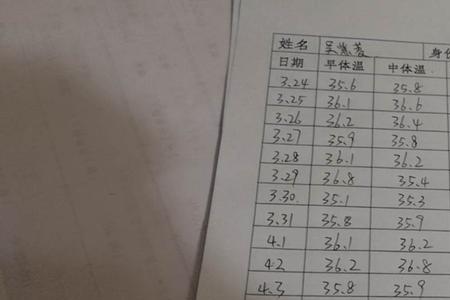 姓名 吴紫菱 身份
日期 早体温 中体温
3.24 35.6 35.8
3.25 36.1 36.6
3.26 36.2 36.4
3.27 35.9 35.8
3.28 36.1 36.2
3.29 36.8 35.4
3.30. 35.1 35.3
3.31 35.8 35.9
4.1 36.1 36.2
4.2 36.2 36.8
4.3 35.8 35.9